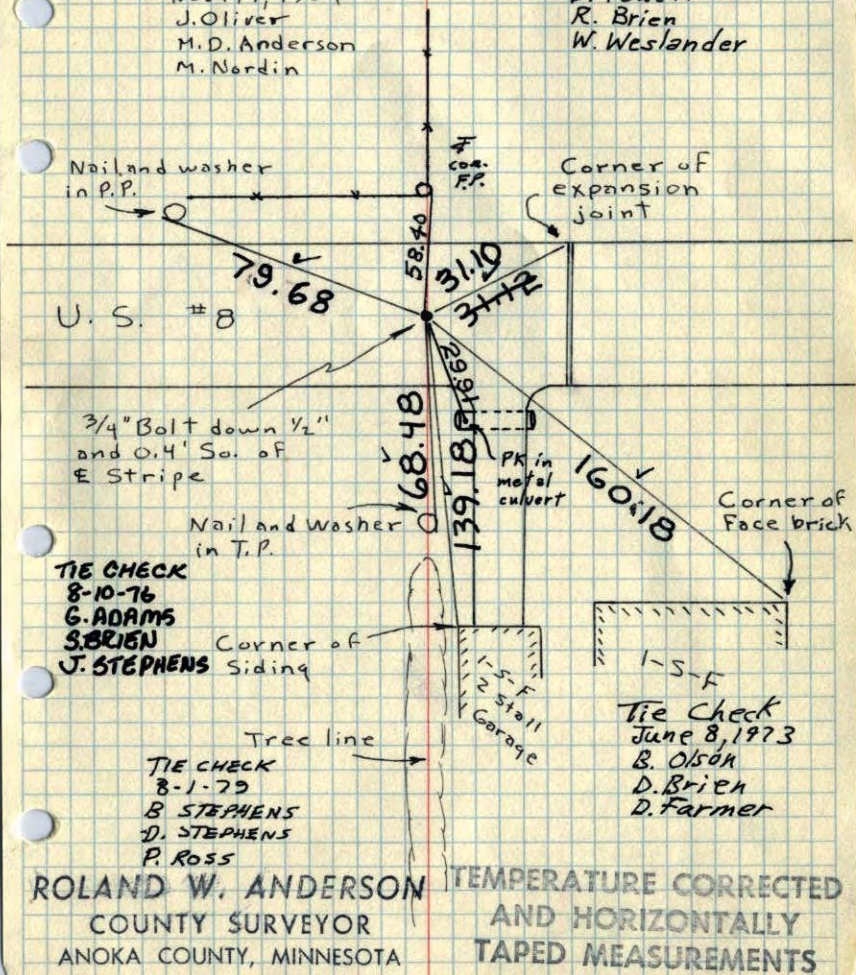 J. Oliver
M.D. Anderson
M. Nordin
R. Brien
W. Weslander
Nail and washer
in P.P.
cor.
F.P.
Corner of
expansion
joint
58.40
31.10
31.12
79.68
U. S. #8
3/4" Bolt down 1/2"
and 0.4' So. of
℄ Stripe
68.48
139.18
PK in
metal
culvert
160.18
Corner of
Face brick
Nail and Washer
in T.P.
TIE CHECK
8-10-76
G. ADAMS
S. BRIEN
J. STEPHENS
Corner of
Siding
1-S-F
2 Stall
Garage
1-S-F
Tie Check
June 8, 1973
B. Olson
D. Brien
D. Farmer
Tree line
TIE CHECK
8-1-79
B STEPHENS
D. STEPHENS
P. ROSS
ROLAND W. ANDERSON
COUNTY SURVEYOR
ANOKA COUNTY, MINNESOTA
TEMPERATURE CORRECTED
AND HORIZONTALLY
TAPED MEASUREMENTS